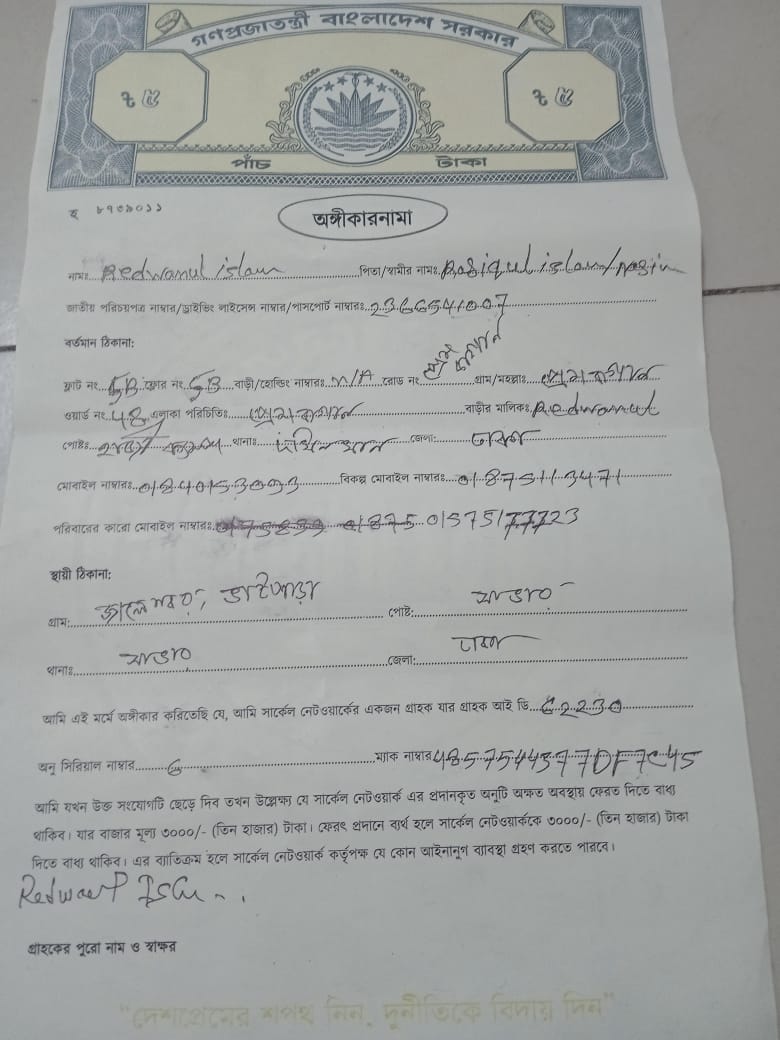 গণপ্রজাতন্ত্রী বাংলাদেশ সরকার
৳ ৫ ৳ ৫
পাঁচ টাকা
৮৭৩৯০১১
অঙ্গীকারনামা
নামঃ Redwanul islam পিতা/স্বামীর নামঃ Rafiqul islam/
জাতীয় পরিচয়পত্র নাম্বার/ড্রাইভিং লাইসেন্স নাম্বার/পাসপোর্ট নাম্বারঃ 2366541007
বর্তমান ঠিকানা:
ফ্লাট নং. 5B ফ্লোর নং. 5B বাড়ী/হোল্ডিং নাম্বারঃ N/A রোড নং. গ্রাম/মহল্লাঃ
ওয়ার্ড নং. 48 এলাকা পরিচিতিঃ বাড়ীর মালিকঃ Redwanul
পোষ্টঃ থানাঃ জেলাঃ ঢাকা
মোবাইল নাম্বারঃ 01840153093 বিকল্প মোবাইল নাম্বারঃ 01875113471
পরিবারের কারো মোবাইল নাম্বারঃ 01575177723
স্থায়ী ঠিকানা:
গ্রাম: পোষ্ট:
থানাঃ জেলা: ঢাকা
আমি এই মর্মে অঙ্গীকার করিতেছি যে, আমি সার্কেল নেটওয়ার্কের একজন গ্রাহক যার গ্রাহক আই ডি. C2230
অনু সিরিয়াল নাম্বার ম্যাক নাম্বার 4857544377DF7C45
আমি যখন উক্ত সংযোগটি ছেড়ে দিব তখন উল্লেক্ষ্য যে সার্কেল নেটওয়ার্ক এর প্রদানকৃত অনুটি অক্ষত অবস্থায় ফেরত দিতে বাধ্য
থাকিব। যার বাজার মূল্য ৩০০০/- (তিন হাজার) টাকা। ফেরৎ প্রদানে ব্যর্থ হলে সার্কেল নেটওয়ার্ককে ৩০০০/- (তিন হাজার) টাকা
দিতে বাধ্য থাকিব। এর ব্যতিক্রম হলে সার্কেল নেটওয়ার্ক কর্তৃপক্ষ যে কোন আইনানুগ ব্যাবস্থা গ্রহণ করতে পারবে।
গ্রাহকের পুরো নাম ও স্বাক্ষর
"দেশপ্রেমের শপথ নিন, দুর্নীতিকে বিদায় দিন"